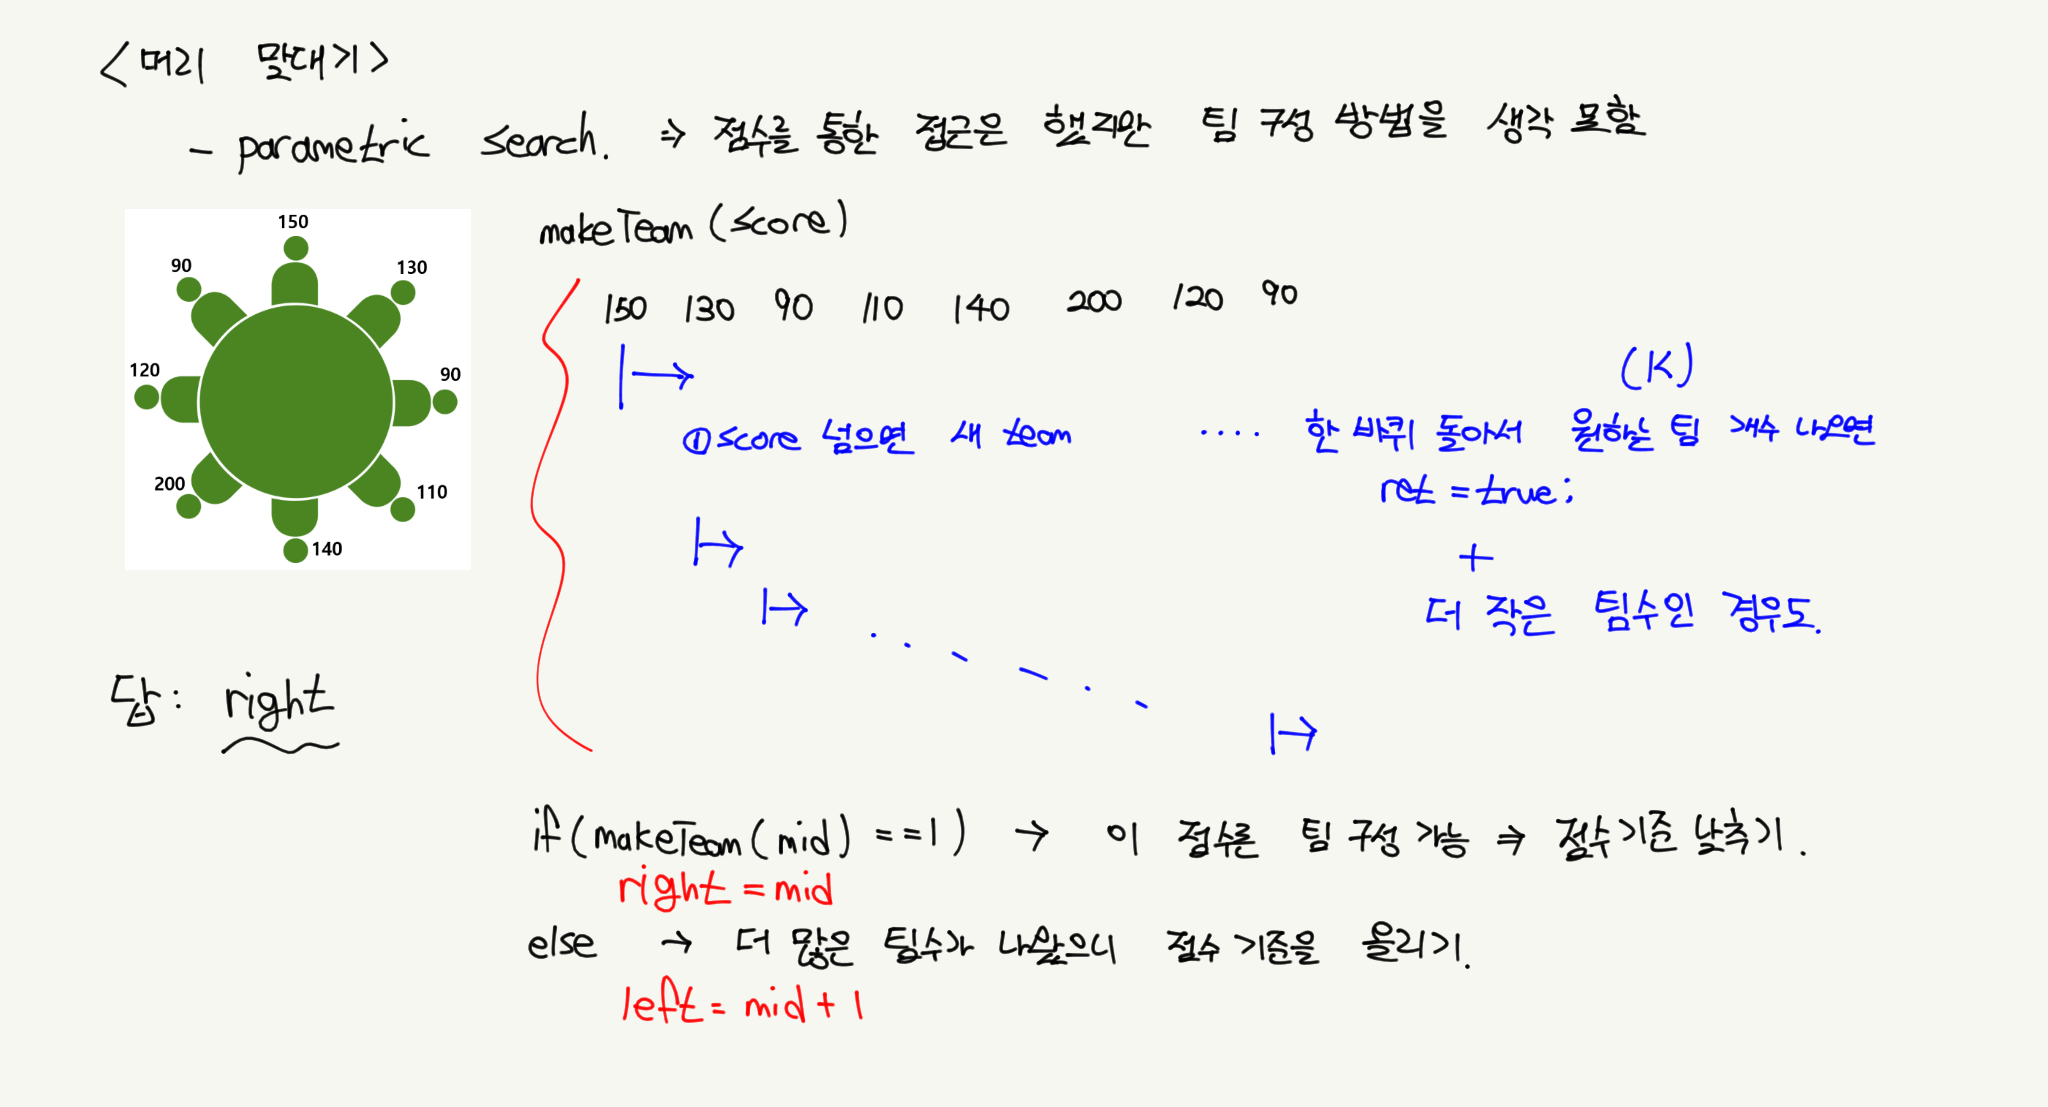 <머리 말대기>
- parametric search. ⇒ 점수를 통한 접근은 했지만 팀 구성 방법을 생각 못함
150
90
130
120
90
200
110
140
makeTeam (score)
150 130 90 110 140 200 120 90
(K)
① score 넘으면 새 team .... 한 바퀴 돌아서 원하는 팀 개수 나오면
ret = true;
+
더 작은 팀수인 경우도.
답: right
if (makeTeam (mid) == 1) → 이 점수론 팀 구성 가능 ⇒ 점수 기준 낮추기.
right = mid
else → 더 많은 팀수가 나왔으니 점수 기준을 올리기.
left = mid + 1